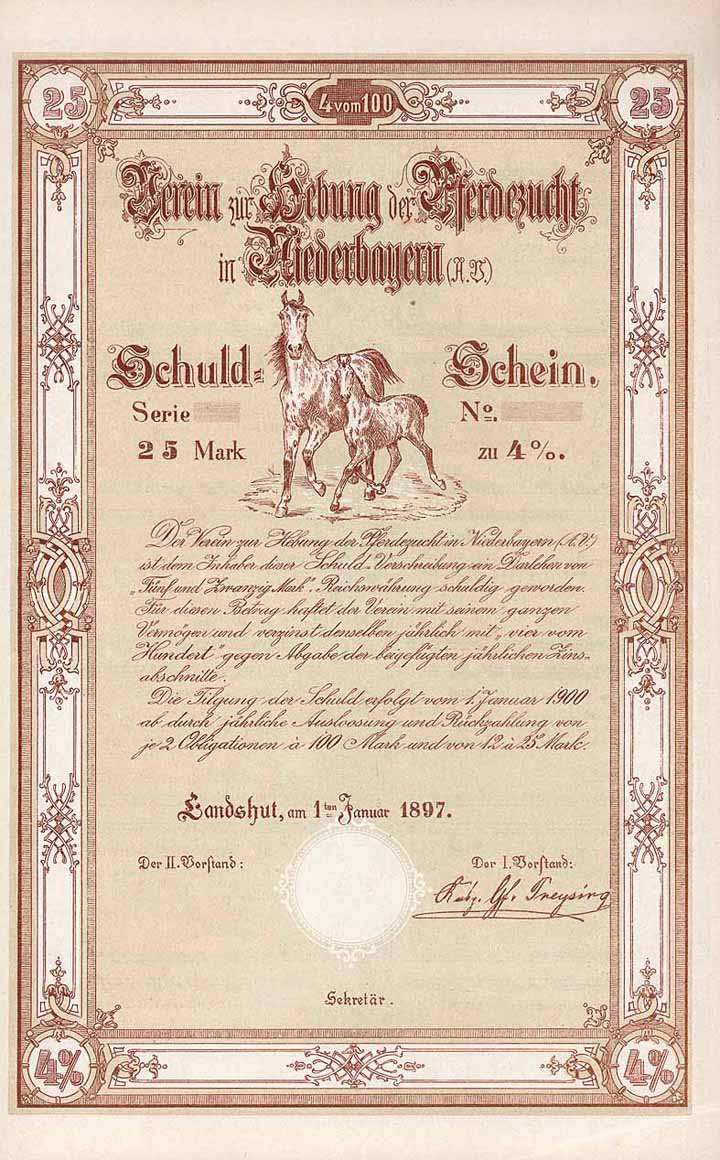 25 4 vom 100 25
Verein zur Hebung der Pferdezucht
in Niederbayern (A.V.)
Schuld- Schein.
Serie No.
25 Mark zu 4%.
Der Verein zur Hebung der Pferdezucht in Niederbayern (A.V.)
ist dem Inhaber dieser Schuld-Verschreibung ein Darlehen von
„Fünf und Zwanzig Mark", Reichswährung schuldig geworden.
Für diesen Betrag haftet der Verein mit seinem ganzen
Vermögen und verzinst denselben jährlich mit „vier vom
Hundert" gegen Abgabe der beigefügten jährlichen Zins-
abschnitte.
Die Tilgung der Schuld erfolgt vom 1. Januar 1900
ab durch jährliche Ausloosung und Rückzahlung von
je 2 Obligationen à 100 Mark und von 12 à 25 Mark.
Landshut, am 1ten Januar 1897.
Der II. Vorstand: Der I. Vorstand:
Gf. Preysing
Sekretär.
4% 4%